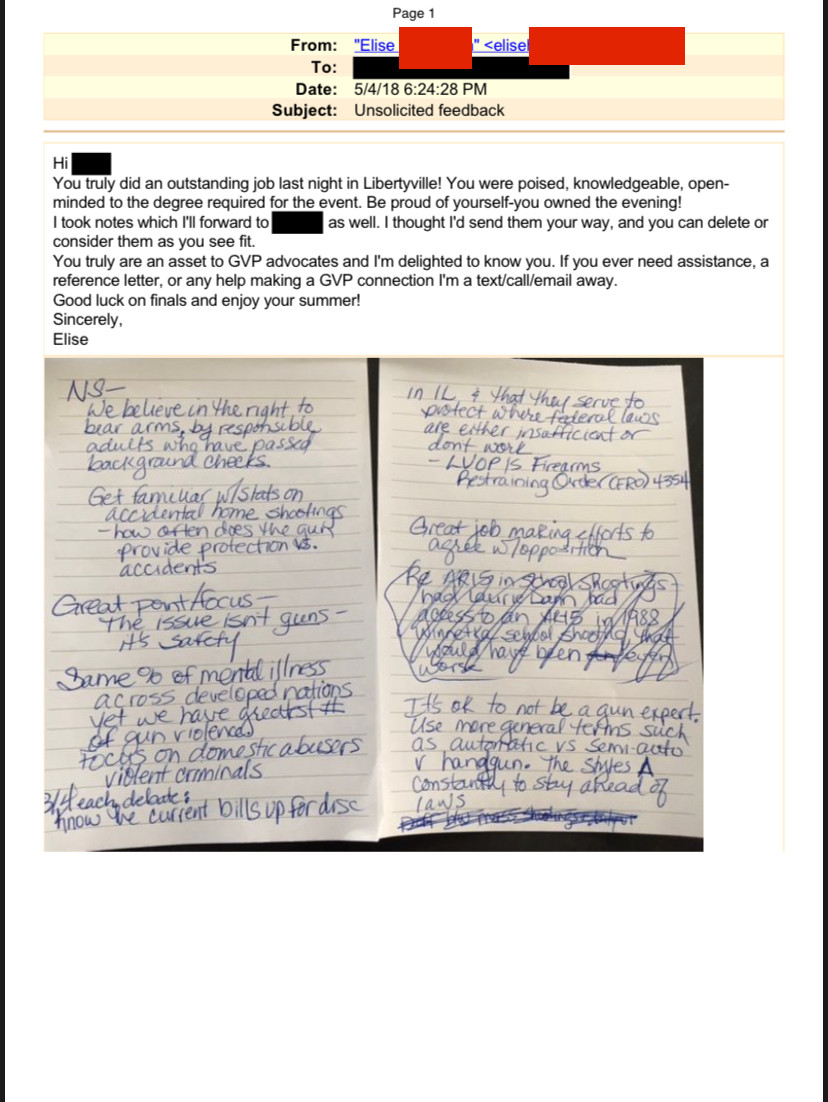 Page 1
From: "Elise " <elisel
To:
Date: 5/4/18 6:24:28 PM
Subject: Unsolicited feedback
Hi
You truly did an outstanding job last night in Libertyville! You were poised, knowledgeable, open-
minded to the degree required for the event. Be proud of yourself-you owned the evening!
I took notes which I'll forward to as well. I thought I'd send them your way, and you can delete or
consider them as you see fit.
You truly are an asset to GVP advocates and I'm delighted to know you. If you ever need assistance, a
reference letter, or any help making a GVP connection I'm a text/call/email away.
Good luck on finals and enjoy your summer!
Sincerely,
Elise
NS-
We believe in the right to
bear arms, by responsible
adults who have passed
background checks.
Get familiar w/stats on
accidental home shootings
- how often does the gun
provide protection vs.
accidents
Great point/focus -
The issue isn't guns -
it's safety
Same % of mental illness
across developed nations
yet we have greatest #
of gun violence.
Focus on domestic abusers
violent criminals
each debate:
Know the current bills up for disc
in IL & that they serve to
protect where federal laws
are either insufficient or
dont work
- LVOP IS Firearms
Restraining Order (FRO) 4354
Great job making efforts to
agree w/opposition
Re AR15 in school shootings
had Laurie Dann had
access to an AR15 in 1988
Winnetka school shooting that
would have been even
worse
It's ok to not be a gun expert.
Use more general terms such
as automatic vs semi-auto
v handgun. The styles Δ
constantly to stay ahead of
laws